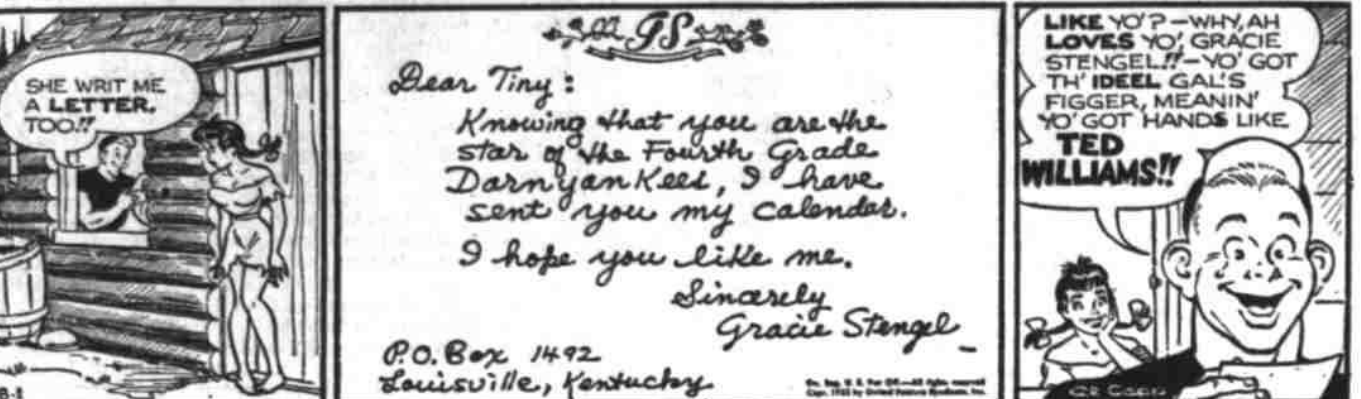 SHE WRIT ME
A LETTER,
TOO!!
GS
Dear Tiny:
Knowing that you are the
star of the Fourth Grade
Darnyankees, I have
sent you my calendar.
I hope you like me.
Sincerely
Gracie Stengel
P.O. Box 1492
Louisville, Kentucky
LIKE YO'? - WHY, AH
LOVES YO', GRACIE
STENGEL!! - YO' GOT
TH' IDEEL GAL'S
FIGGER, MEANIN'
YO' GOT HANDS LIKE
TED
WILLIAMS!!
8-1